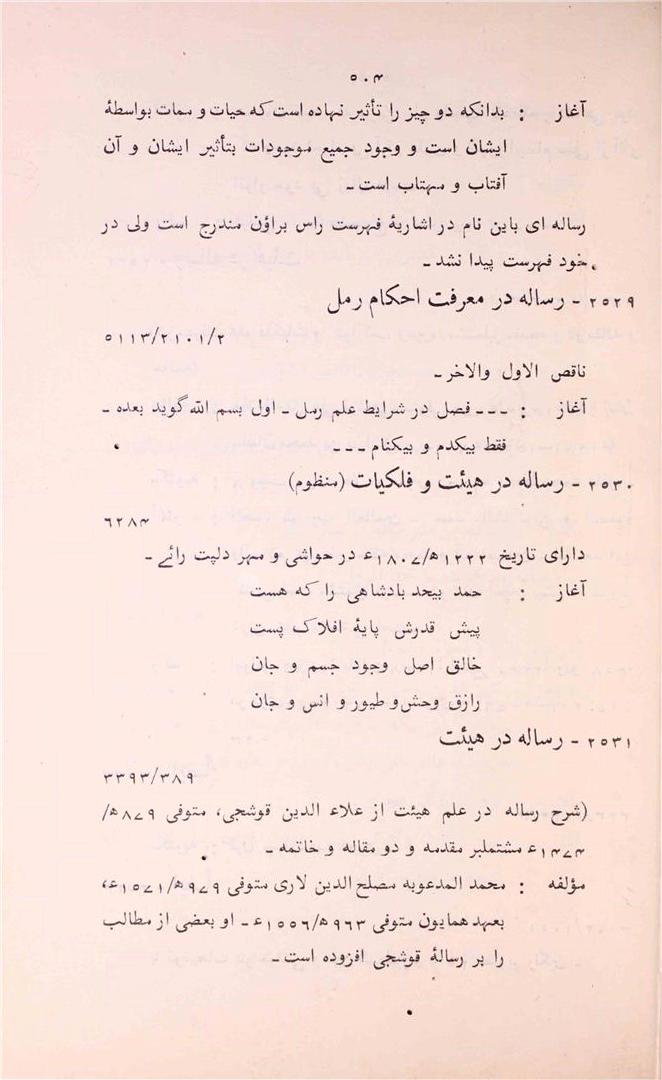 ۵۰۴
آغاز : بدانکه دو چیز را تأثیر نهاده است که حیات و ممات بواسطهٔ
ایشان است و وجود جمیع موجودات بتأثیر ایشان و آن
آفتاب و مهتاب است ـ
رساله ای باین نام در اشاریهٔ فهرست راس براؤن مندرج است ولی در
خود فهرست پیدا نشد ـ
۲۵۲۹ - رساله در معرفت احکام رمل
۵۱۱۳/۲۱۰۱/۲
ناقص الاول والاخر ـ
آغاز : ـ ـ ـ فصل در شرایط علم رمل ـ اول بسم الله گوید بعده ـ
فقط بیکدم و بیکنام ـ ـ ـ
۲۵۳۰ - رساله در هیئت و فلکیات (منظوم)
۶۲۸۴
دارای تاریخ ۱۲۲۲ھ/۱۸۰۷ء در حواشی و مهر دلپت رائے ـ
آغاز : حمد بیحد بادشاهی را که هست
پیش قدرش پایهٔ افلاک پست
خالق اصل وجود جسم و جان
رازق وحش و طیور و انس و جان
۲۵۳۱ - رساله در هیئت
۳۳۹۳/۳۸۹
(شرح رساله در علم هیئت از علاء الدین قوشجی، متوفی ۸۷۹ھ/
۱۴۷۴ء مشتملبر مقدمه و دو مقاله و خاتمه ـ
مؤلفه : محمد المدعوبه مصلح الدین لاری متوفی ۹۷۹ھ/۱۵۷۱ء،
بعهد همایون متوفی ۹۶۳ھ/۱۵۵۶ء ـ او بعضی از مطالب
را بر رسالهٔ قوشجی افزوده است ـ